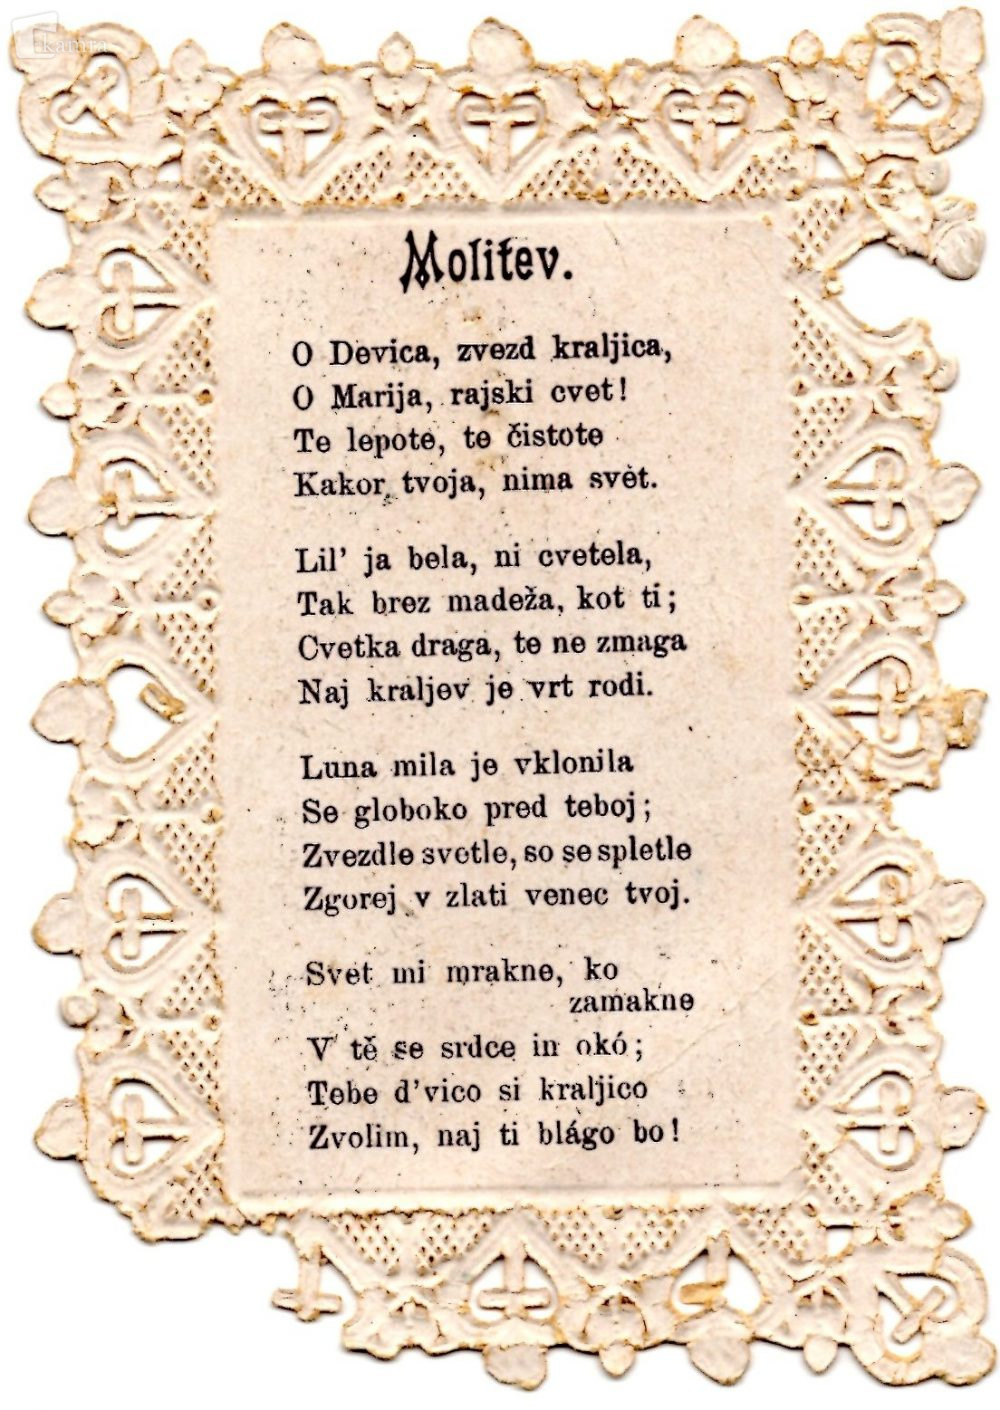 kamra
Molitev.
O Devica, zvezd kraljica,
O Marija, rajski cvet!
Te lepote, te čistote
Kakor tvoja, nima svèt.
Lil' ja bela, ni cvetela,
Tak brez madeža, kot ti;
Cvetka draga, te ne zmaga
Naj kraljev je vrt rodi.
Luna mila je vklonila
Se globoko pred teboj;
Zvezdle svetle, so se spletle
Zgorej v zlati venec tvoj.
Svet mi mrakne, ko
zamakne
V tě se srdce in okó;
Tebe d'vico si kraljico
Zvolim, naj ti blágo bo!